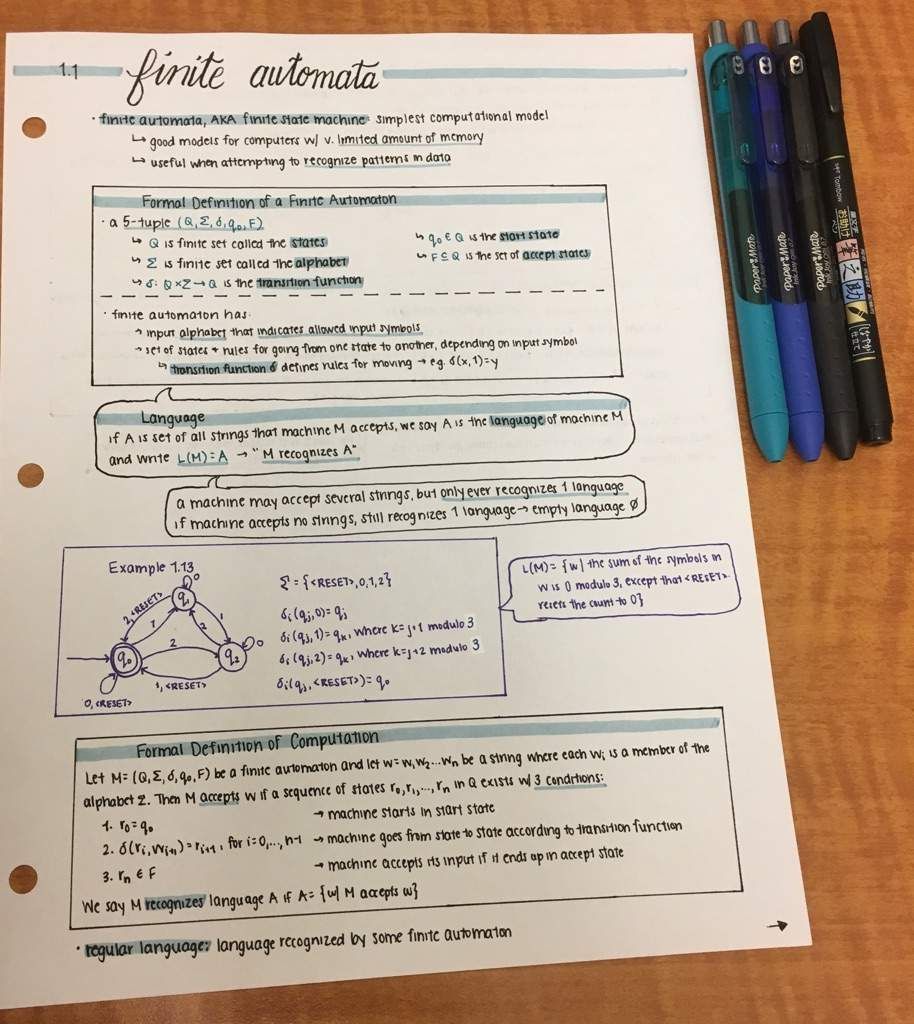 1.1 finite automata
· finite automata, AKA finite state machine: simplest computational model
↳ good models for computers w/ v. limited amount of memory
↳ useful when attempting to recognize patterns in data
Formal Definition of a Finite Automaton
· a 5-tuple (Q, Σ, δ, q₀, F)
↳ Q is finite set called the states
↳ Σ is finite set called the alphabet
↳ δ: Q×Σ→Q is the transition function
↳ q₀ ∈ Q is the start state
↳ F ⊆ Q is the set of accept states
· finite automaton has:
→ input alphabet that indicates allowed input symbols
→ set of states + rules for going from one state to another, depending on input symbol
↳ transition function δ defines rules for moving → e.g. δ(x,1)=y
Language
if A is set of all strings that machine M accepts, we say A is the language of machine M
and write L(M)=A → "M recognizes A"
a machine may accept several strings, but only ever recognizes 1 language
if machine accepts no strings, still recognizes 1 language → empty language ∅
Example 1.13
0
q₁
2, <RESET>
1
1
2
q₀
2
q₂
0
1, <RESET>
0, <RESET>
Σ = {<RESET>, 0, 1, 2}
δᵢ(qⱼ, 0) = qⱼ
δᵢ(qⱼ, 1) = qₖ, where k=j+1 modulo 3
δᵢ(qⱼ, 2) = qₖ, where k=j+2 modulo 3
δᵢ(qⱼ, <RESET>) = q₀
L(M) = {w| the sum of the symbols in
w is 0 modulo 3, except that <RESET>
resets the count to 0}
Formal Definition of Computation
Let M=(Q, Σ, δ, q₀, F) be a finite automaton and let w=w₁w₂...wₙ be a string where each wᵢ is a member of the
alphabet Σ. Then M accepts w if a sequence of states r₀, r₁, ..., rₙ in Q exists w/ 3 conditions:
1. r₀=q₀ → machine starts in start state
2. δ(rᵢ, wᵢ₊₁)=rᵢ₊₁, for i=0,..., n-1 → machine goes from state to state according to transition function
3. rₙ ∈ F → machine accepts its input if it ends up in accept state
We say M recognizes language A if A= {w| M accepts w}
· regular language: language recognized by some finite automaton
→
Paper Mate
Paper Mate
Paper Mate
Tombow